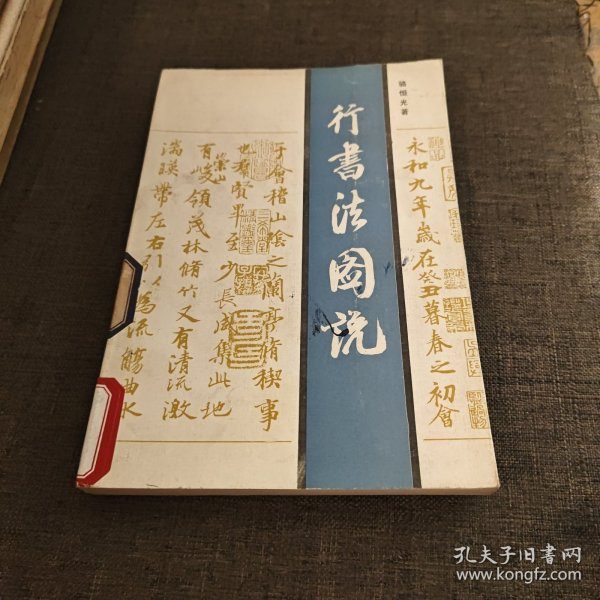 骆恒光著
行书法图说
永和九年歲在癸丑暮春之初會
于會稽山陰之蘭亭脩禊事
也羣賢畢至少長咸集此地
有崇山峻領茂林脩竹又有清流激
湍暎帶左右引以為流觴曲水
孔夫子旧书网
www.kongfz.com